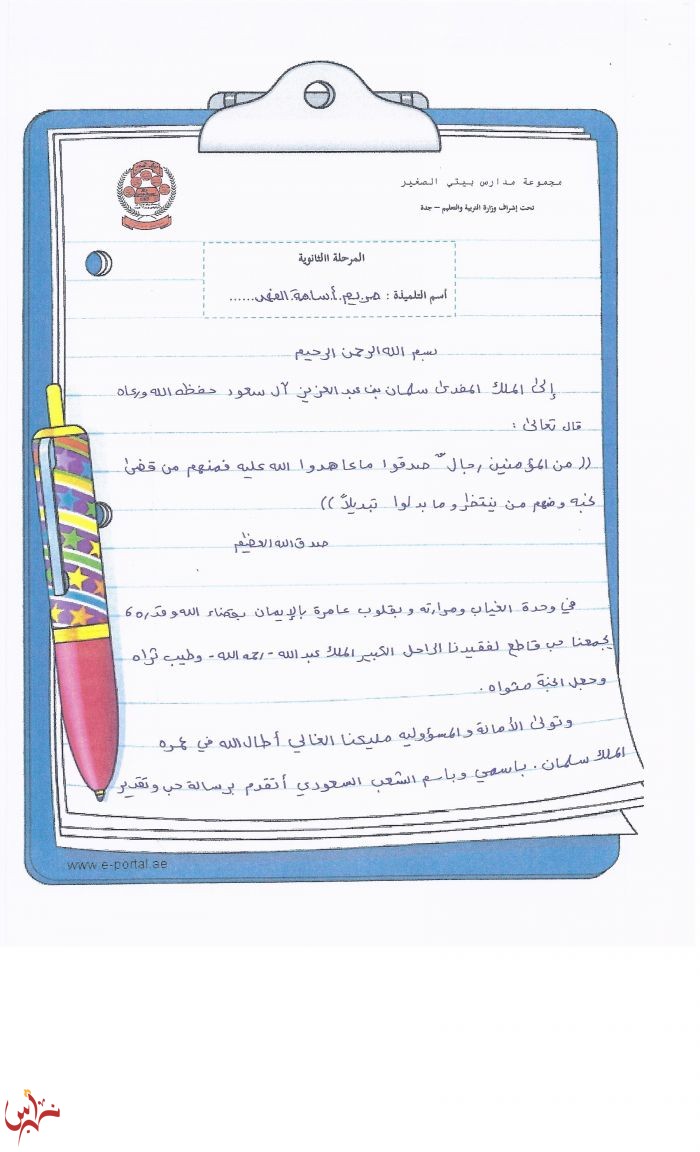 مجموعة مدارس بيتي الصغير
تحت إشراف وزارة التربية والتعليم – جدة
المرحلة االثانوية
أسم التلميذة : مريم أسامة
بسم الله الرحمن الرحيم
إلى الملك المفدى سلمان بن عبد العزيز آل سعود حفظه الله ورعاه
قال تعالى :
(( من المؤمنين رجالٌ صدقوا ما عاهدوا الله عليه فمنهم من قضى
نحبه ومنهم من ينتظر وما بدلوا تبديلاً ))
صدق الله العظيم
في وحدة الغياب ومرارته وبقلوب عامرة بالإيمان بقضاء الله وقدره
يجمعنا حب قاطع لفقيدنا الراحل الكبير الملك عبد الله - رحمه الله - وطيب ثراه
وجعل الجنة مثواه .
وتولى الأمانة والمسؤوليه مليكنا الغالي أطال الله في عمره
الملك سلمان . باسمي وباسم الشعب السعودي أتقدم برسالة حب وتقدير
www.e-portal.ae
نبراس